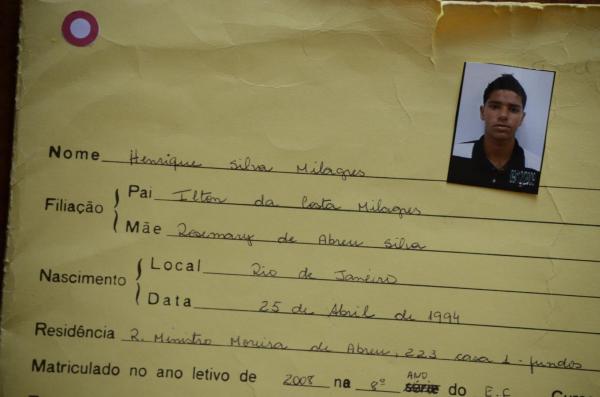 Nome Henrique Silva Milagres
Filiação Pai Ilton da Costa Milagres
Mãe Rosemary de Abreu Silva
Nascimento Local Rio de Janeiro
Data 25 de Abril de 1994
Residência R. Ministro Moreira de Abreu, 223 casa 1 - fundos
Matriculado no ano letivo de 2008 na 8º ANO série do E.F.